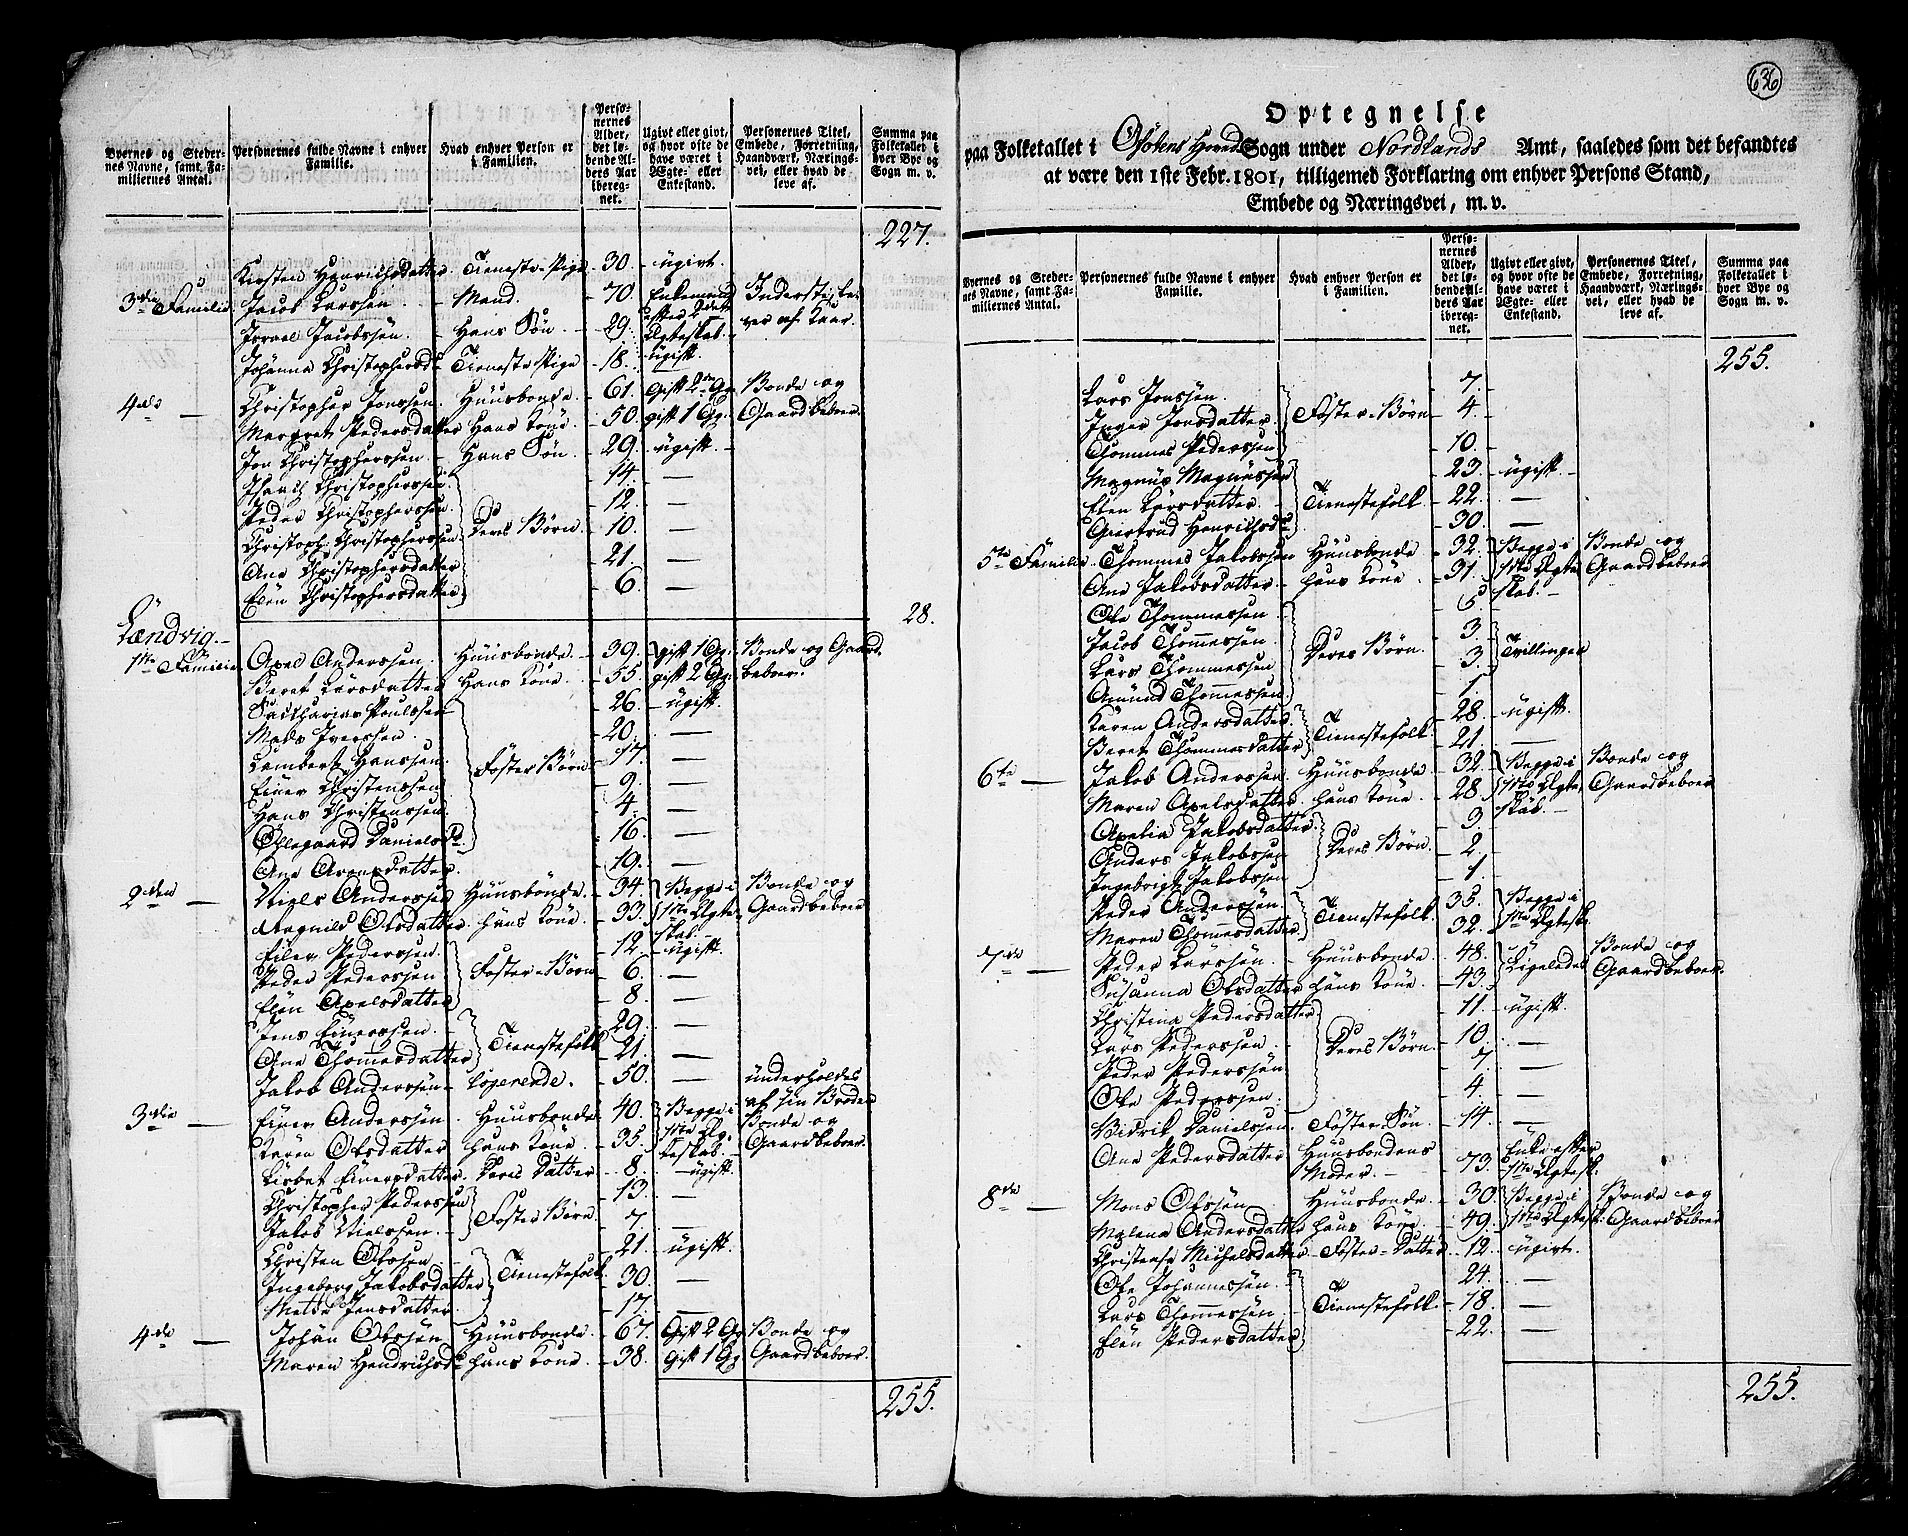 Byernes og Steder-
nes Navne, samt Fa-
miliernes Antal.
Personernes fulde Navne i enhver
Familie.
Hvad enhver Person er
i Familien.
Perso-
nernes
Alder,
det lø-
bende Al-
ders Aar
iberegnet.
Ugivt eller givt,
og hvor ofte de
have været i
Ægte- eller
Enkestand.
Personernes Titel,
Embede, Forretning,
Haandværk, Nærings-
vei, eller hvad de
leve af.
Summa paa
Folketallet i
hver Bye og
Sogn m. v.
227.
Kirsten Henrichsdatter Tieneste-Pige 30. ugivt
3die Familie Jacob Larssen Mand. 70. Enkemand efter 2det Ægteskab
Israel Jacobssøn Hans Søn 29.
Johanna Christophersd Tieneste Pige 18. ugift
4de Christopher Jonssen Huusbonde 61. Gift 2den G. Bonde og
Margret Pedersdatter Hans Kone 50. gift 1 G. Gaardbeboer
Jon Christopherssen Hans Søn 29. ugift
Christopherssen 14. —
Peder Christopherssen 12. —
Christoph. Christopherssen Deres Børn 10. —
Ane Christophersdatter 21. —
Elen Christophersdatter 6. —
28.
Lændvig.
1ste Familie Axel Anderssen Huusbonde 39. gift 1 G. Bonde og Gaard
Beret Larsdatter Hans Kone 55. gift 2 G. beboer.
Sacharias Poulssen 26. ugift
Mads Iverssen 20. —
Lambert Hanssen Foster Børn 17. —
Einer Christenssen 9. —
Hans Christenssen 4. —
Ollegaard Danielsd 16. —
Ane Arensdatter 19. —
2den Niels Anderssen Huusbonde 34. Begge i Bonde og
Magnild Olsdatter hans Kone 33. 1ste Ægte Gaardbeboer
skab
Eiler Pederssen 12. ugift
Peder Pederssen Foster-Børn 6. —
Elen Axelsdatter 8. —
Jens Einerssen 29. —
Ane Thomesdatter Tienestefolk 21. —
Jakob Anderssøn logerende. 50. — underholdes
af sin Broder
3die Einer Anderssøn Huusbonde 40. Begge i Bonde og
Karen Olsdatter hans Kone 35. 1ste Æg- Gaardbeboer
teskab
Lisbet Einersdatter Deres Datter 8. ugift
Christopher Pederssen 13. —
Jakob Nielssen Foster Børn 7. —
Christen Olssen 21. ugift
Ingeborg Jakobsdatter Tienestefolk 30. —
Mette Jensdatter 17. —
4de Johan Olssøn Huusbonde 67. Gift 2 G Bonde og
Maren Hendrichsd hans Kone 38. Gift 1 G Gaardbeboer
255.
636
Optegnelse
paa Folketallet i Ofotens Herred Sogn under Nordlands Amt, saaledes som det befandtes
at være den 1ste Febr. 1801, tilligemed Forklaring om enhver Persons Stand,
Embede og Næringsvei, m. v.
Byernes og Steder-
nes Navne, samt Fa-
miliernes Antal.
Personernes fulde Navne i enhver
Familie.
Hvad enhver Person er
i Familien.
Perso-
nernes
Alder,
det lø-
bende Al-
ders Aar
iberegnet.
Ugivt eller givt,
og hvor ofte de
have været i
Ægte- eller
Enkestand.
Personernes Titel,
Embede, Forretning,
Haandværk, Nærings-
vei, eller hvad de
leve af.
Summa paa
Folketallet i
hver Bye og
Sogn m. v.
255.
Lars Jonssøn 7.
Inger Jonsdatter Foster-Børn 4.
Thommes Pederssen 10.
Magnus Magnussen 23. ugift
Elen Larsdatter Tienestefolk 22. —
Giertrud Henrichsd 30. —
5te Familie Thommes Jakobssen Huusbonde 32. Begge i Bonde og
Ane Jakobsdatter hans Kone 31. 1ste Ægte Gaardbeboer
skab
Ole Thommessen 5.
Jacob Thommessøn 3.
Lars Thommessen Deres Børn 3. Tvillinger
Amund Thommessen 1.
Karen Andersdatter 28. ugift
Beret Thommesdatter Tienestefolk 21. —
6te Jakob Anderssen Huusbonde 32. Begge i Bonde og
Maren Axelsdatter hans Kone 28. 1ste Ægte Gaardbeboer
skab
Axelia Jakobsdatter 3.
Anders Jakobssen Deres Børn 2.
Ingebrigt Jakobssen 1.
Peder Anderssøn 35. Begge i
Maren Thomesdatter Tienestefolk 32. 1ste Ægtesk
7de Peder Larssøn Huusbonde 48. Ligeledes Bonde og
Susanna Olsdatter hans Kone 43. Gaardbeboer
Christina Pedersdatter 11. ugift
Lars Pederssen Deres Børn 10. —
Peder Pederssøn 7. —
Ole Pederssen 4. —
Didrik Danielssen Foster-Søn 14. —
Ane Pedersdatter Huusbondens Enke efter
Moder. 73. 1ste Ægtesk.
8de Mons Olssøn Huusbonde 30. Begge i Bonde og
Malena Andersdatter hans Kone 49. 1ste Ægtesk. Gaardbeboer
Michelsdatter Foster-Datter 12. ugivt.
Ole Johannessøn 24. —
Lars Thommessøn Tienestefolk 18. —
Elen Pedersdatter 22. —
255.